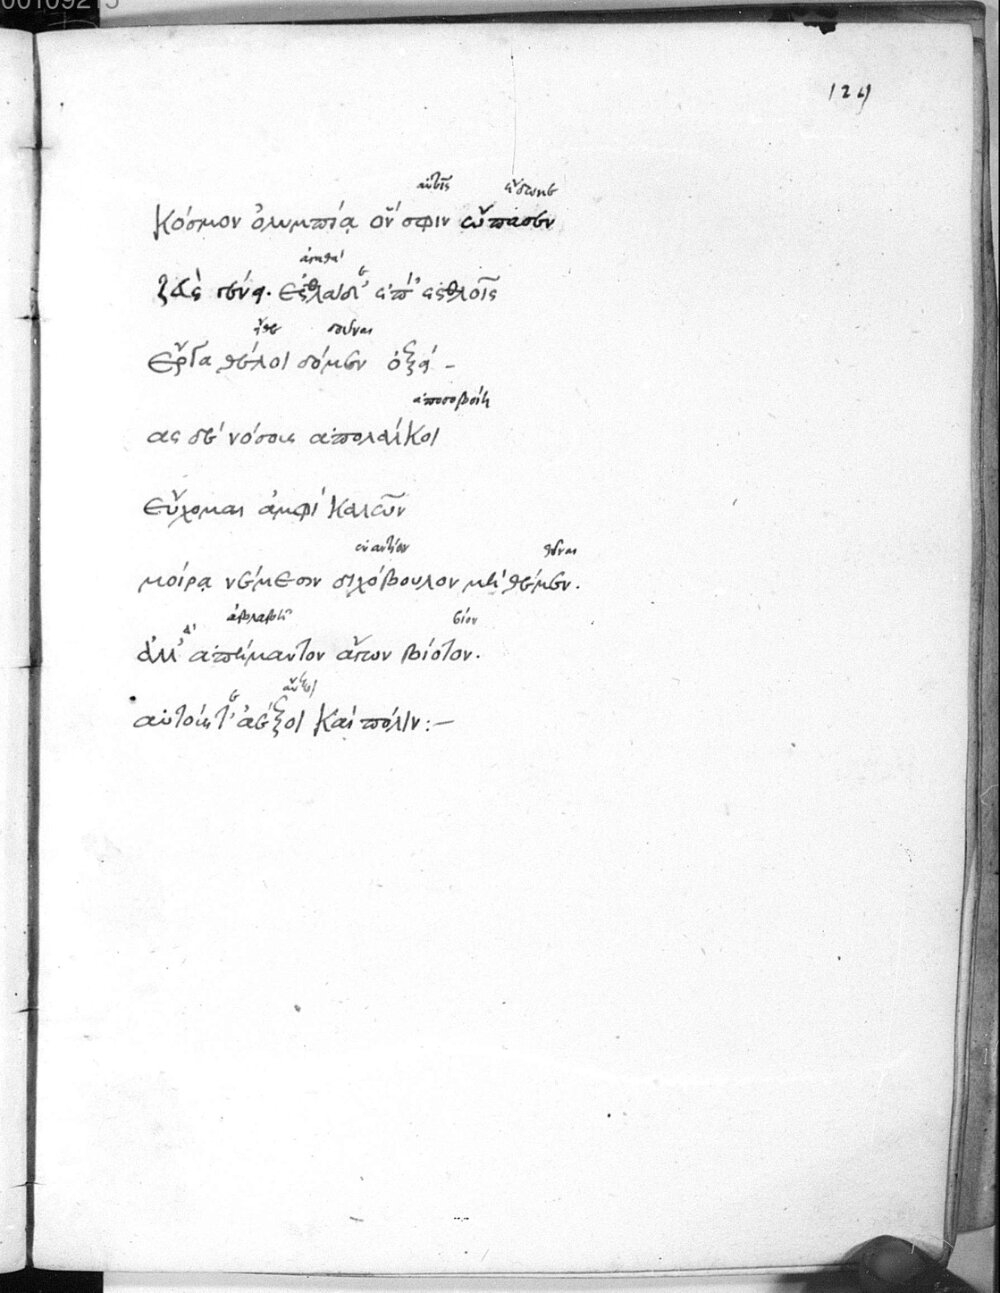 00109215
129
αὐτοῖς
Κόσμον ὀλυμπίᾳ ὅν σφιν ὤπασεν
ἀγαθὰ
ζεὺς γένει. Ἐσθλὰ δ' ἐπ' ἐσθλοῖς
δοῦναι
Ἔργα θέλοι δόμεν ὀξεί-
ἀποσοβοίη
ας δὲ νόσους ἀπολάλκοι
Εὔχομαι ἀμφὶ καλῶν
ἐναντίον θεῖναι
μοίρᾳ νέμεσιν διχόβουλον μὴ θέμεν.
ἀβλαβῆ βίον
ἀλλ' ἀπήμαντον ἄγων βίοτον.
αὔξοι
αὐτούς τ' ἀέξοι καὶ πόλιν:—